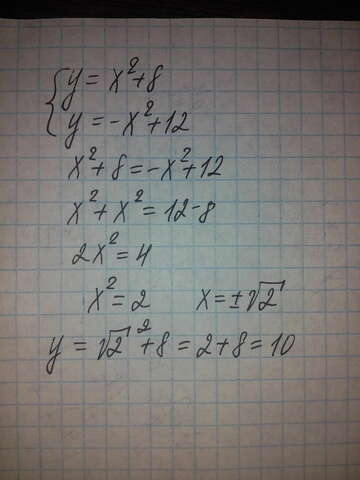 {y = x²+8
{y = -x²+12
x²+8 = -x²+12
x²+x² = 12-8
2x² = 4
x² = 2 x = ±√2
y = √2² +8 = 2+8 = 10